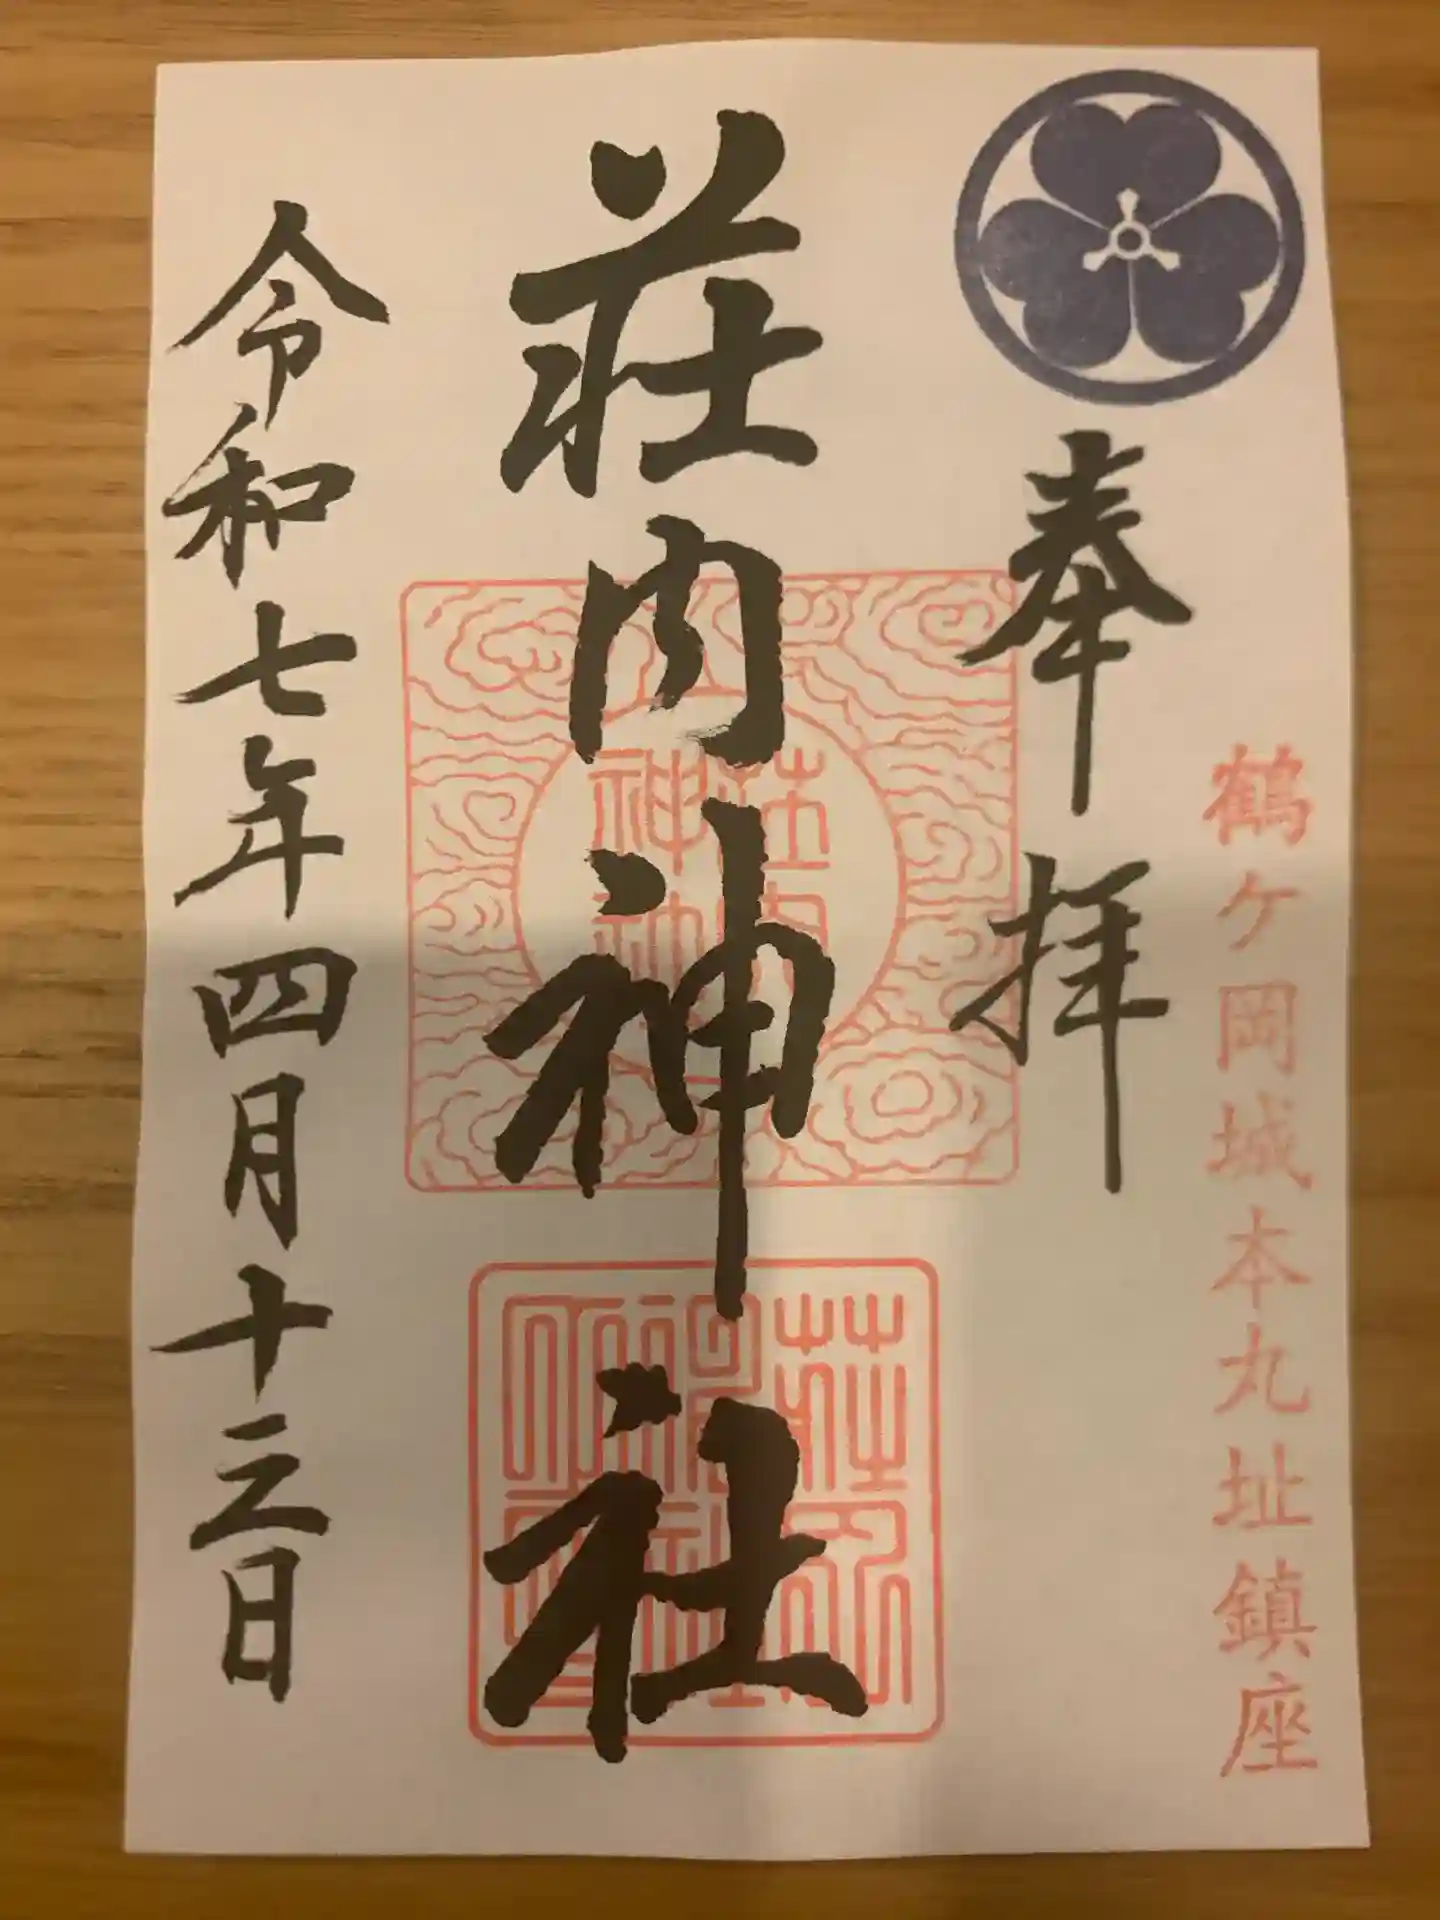 鶴ケ岡城本丸址鎮座
奉拝
荘内神社
荘内
神社
令和七年四月十三日